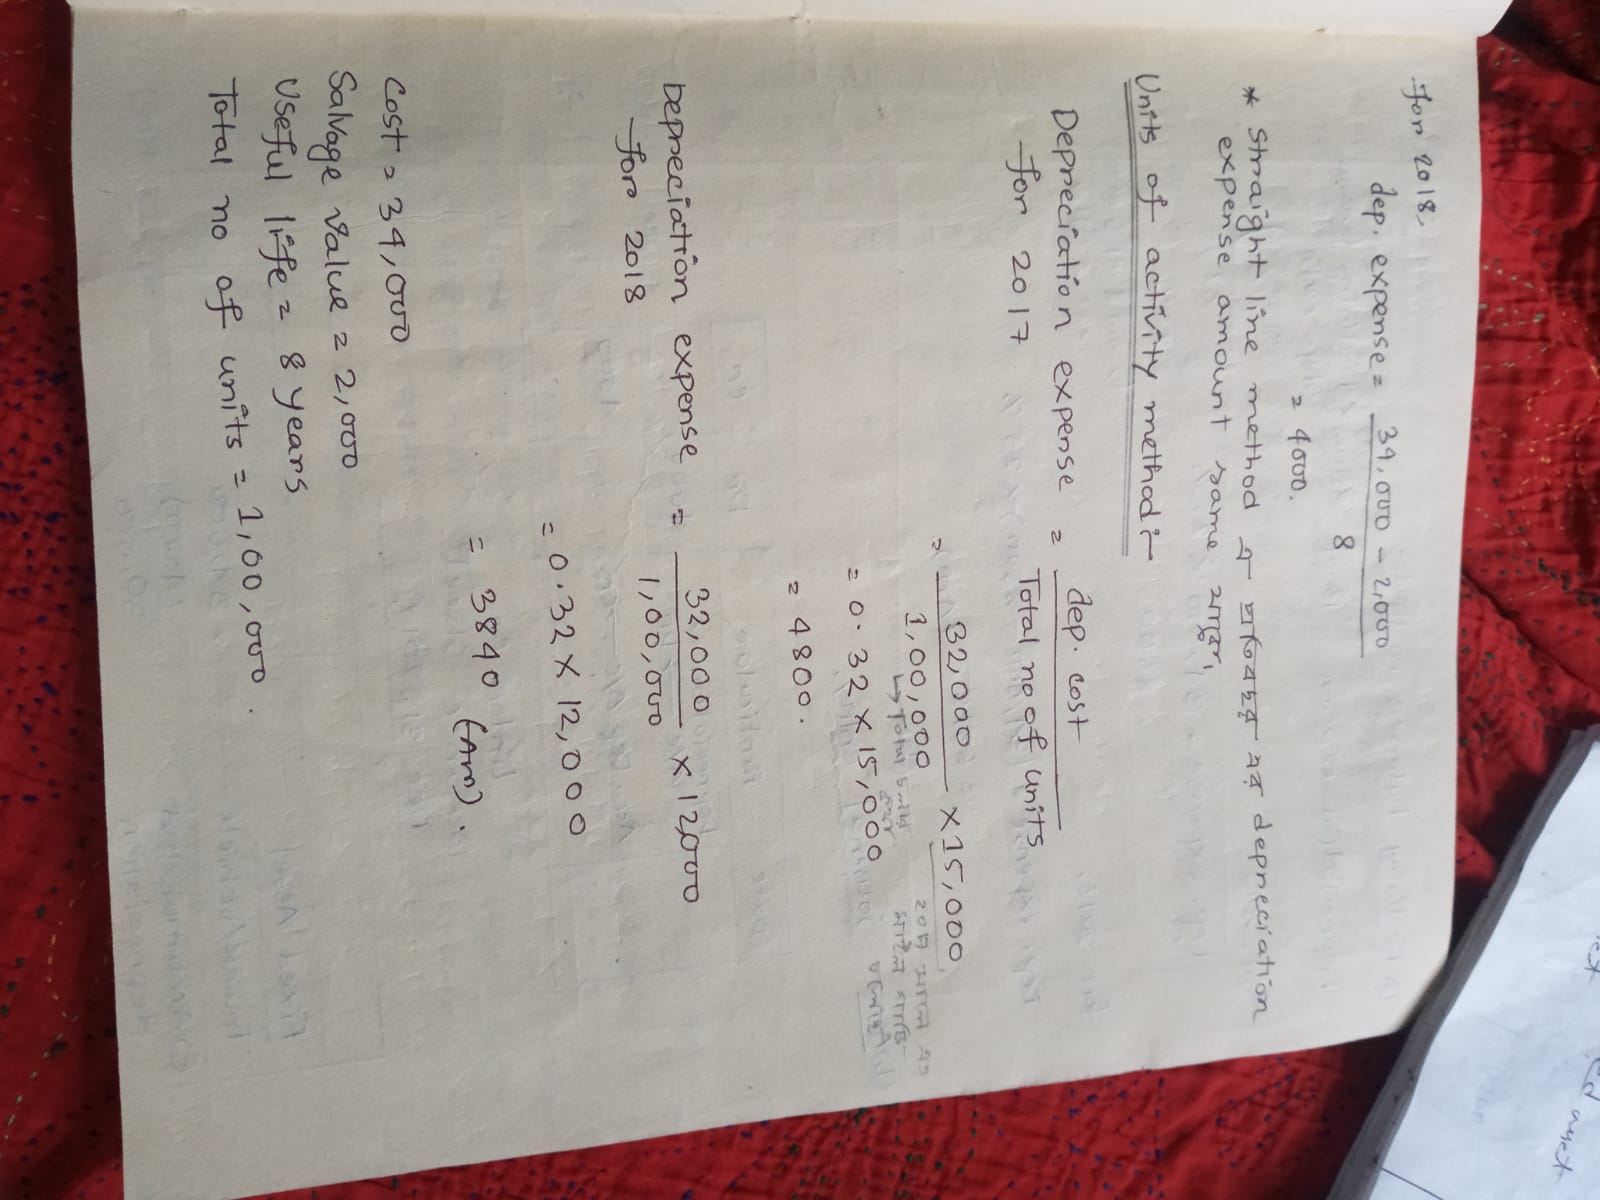 For 2018,
dep. expense = 34,000 - 2,000
8
= 4000.
* Straight line method এ প্রতিবছর depreciation
expense amount same থাকে,
Units of activity method:-
Depreciation expense = dep. cost
for 2017 Total no of units
= 32,000 × 15,000
1,00,000
↳ Total
= 0.32 × 15,000
= 4800.
Depreciation expense = 32,000 × 12,000
for 2018 1,00,000
= 0.32 × 12,000
= 3840 (Am).
Cost = 34,000
Salvage value = 2,000
Useful life = 8 years
Total no of units = 1,00,000.